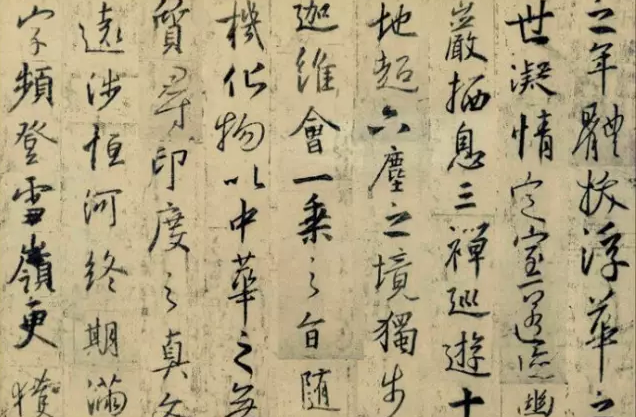 之年體拔浮華之
世凝情定室匿跡幽
巖栖息三禪巡遊十
地超六塵之境獨步
迦維會一乘之旨隨
機化物以中華之無
質尋印度之真文
遠涉恒河終期滿
字頻登雪嶺更獲